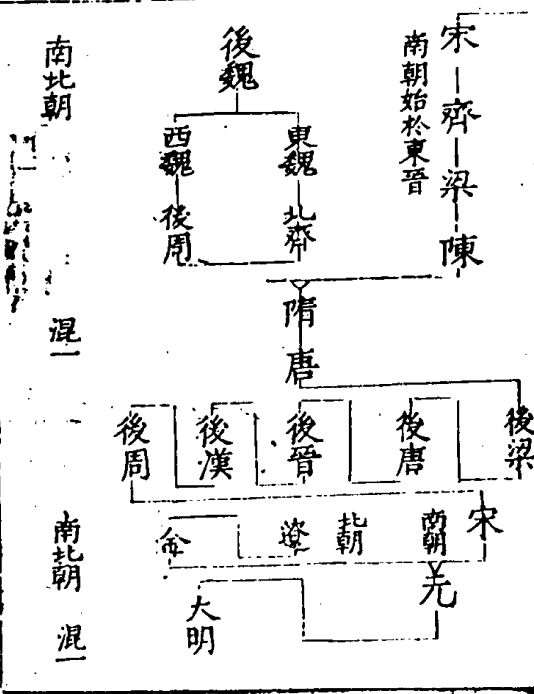 宋齊梁陳
南朝始於東晉
後魏
東魏 北齊
西魏 後周
南北朝
混一
隋唐
後梁
後唐
後晉
後漢
後周
宋
南朝
北朝
遼
金
元
大明
南北朝
混一